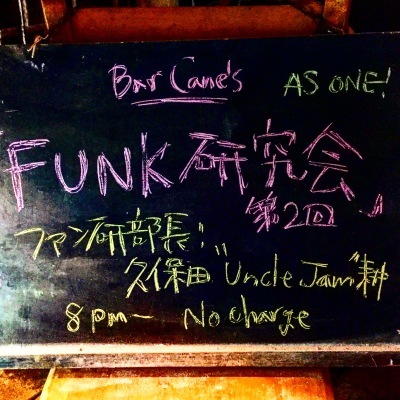 Bar Cane's AS ONE!
「FUNK研究会
第2回」
ファン研部長!
久保田"Uncle Jam"耕
8pm— No charge